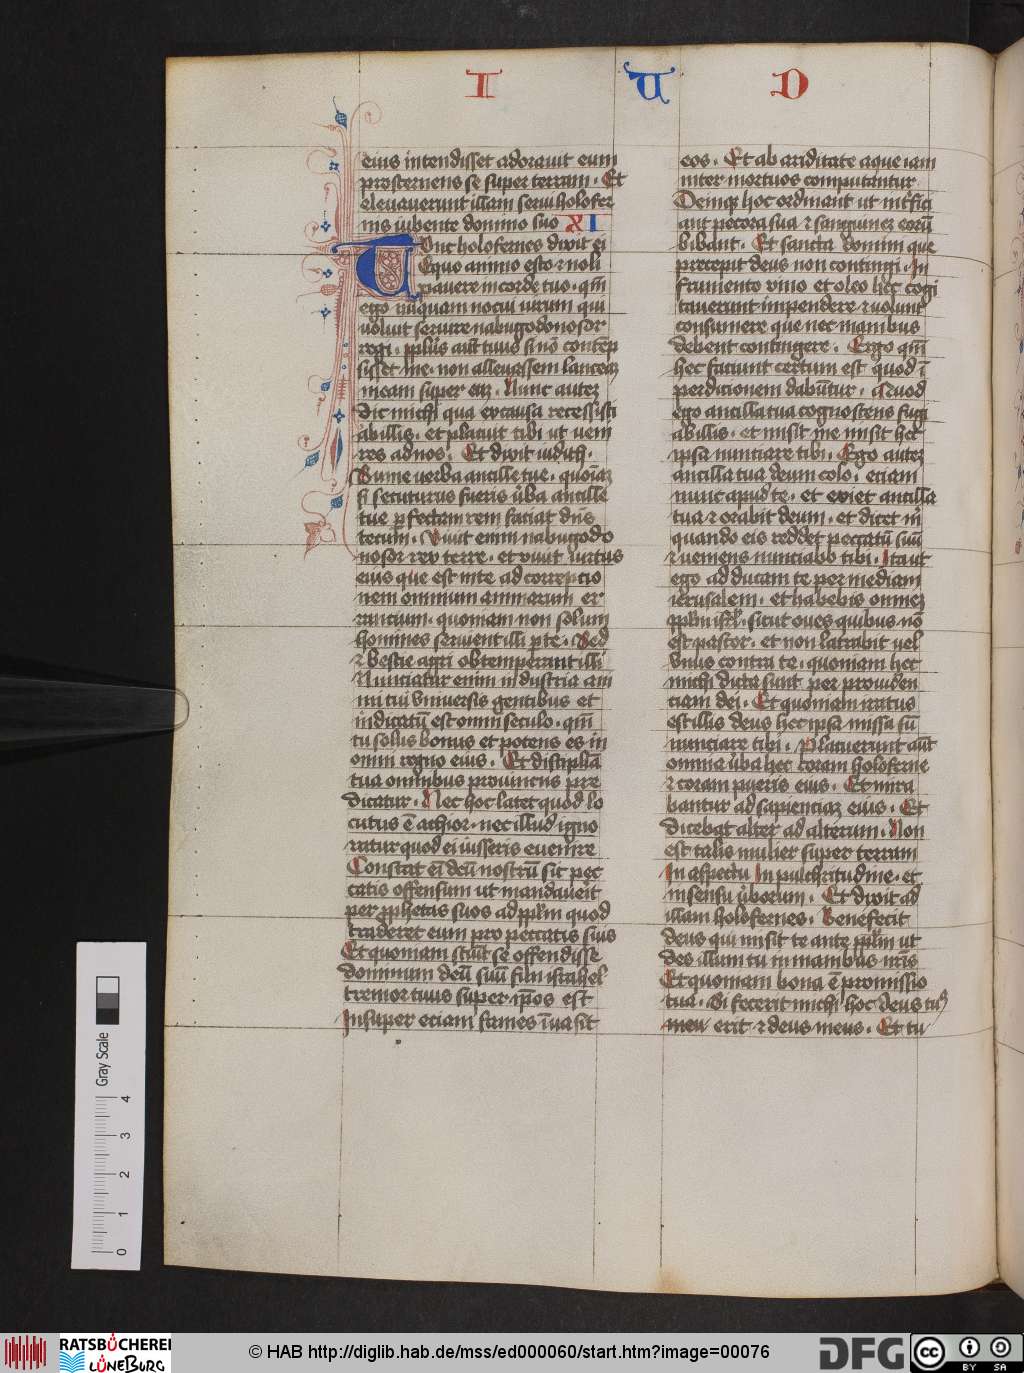 I U D
eius intendisset adorauit eum
prosternens se super terram. Et
eleuauerunt illam serui holofer
nis iubente domino suo XI
Tunc holofernes dixit ei
Equo animo esto et noli
pauere in corde tuo. qm̄
ego nūquam nocui uirum qui
uoluit seruire nabugodonosor
regi. pplūs aūt tuus si nō contēp
sisset me. non alleuassem lanceaꝫ
meam super euꝫ. Nunc auteꝫ
dic michi qua ex causa recessisti
ab illis. et placuit tibi ut ueni
res ad nos. Et dixit iudith.
Sume uerba ancille tue. quoniaꝫ
si secuturus fueris ūba ancille
tue perfectam rem faciat dn̄s
tecum. Viuit enim nabugodo
nosor rex terre. et viuit uirtus
eius que est in te ad correptio
nem omnium animarum er
rantium. quoniam non solum
homines seruient illi per te. Sed
et bestie agri obtemperant illi
Nunciatur enim industria ani
mi tui vniuersis gentibus et
indicatū est omni seculo. qm̄
tu solus bonus et potens es in
omni regno eius. Et disciplīa
tua omnibus prouinciis pre
dicatur. Nec hoc latet quod lo
cutus ē achior. nec illud igno
ratur quod ei iusseris euenire
Constat eī deū nostrū sic pec
catis offensum ut mandauerit
per prophetas suos ad pplm quod
traderet eum pro peccatis suis
Et quoniam sciūt se offendisse
dominum deū suū filii israhel
tremor tuus super ip̄os est
Insuper eciam fames īuasit
eos. Et ab ariditate aque iam
inter mortuos computantur
Deniqꝫ hoc ordinant ut int̄fici
ant pecora sua et sanguineꝫ eorū
bibant. Et sancta domini que
precepit deus non contingi. In
frumento vino et oleo hec cogi
tauerunt impendere et uolunt
consumere que nec manibus
debent contingere. Ergo qm̄
hec faciunt certum est quod ī
perdicionem dabūtur. Quod
ego ancilla tua cognoscens fugi
ab illis. et misit me misit hec
ipsa nunciare tibi. Ego auteꝫ
ancilla tua deum colo. eciam
nunc apud te. et exiet ancilla
tua et orabit deum. et dicet m̄
quando eis reddet peccatū suū
et ueniens nunciabo tibi. Ita ut
ego adducam te per mediam
ierusalem. et habebis omneꝫ
pplm isrl. sicut oues quibus nō
est pastor. et non latrabit uel
vnus contra te. quoniam hec
michi dicta sunt per prouiden
tiam dei. Et quoniam iratus
est illis deus hec ipsa missa sū
nunciare tibi. Placuerunt aūt
omnia ūba hec coram holoferne
et coram pueris eius. Et mira
bantur ad sapienciaꝫ eius. Et
dicebat alter ad alterum. Non
est talis mulier super terram
In aspectu In pulchritudine. et
in sensu ūborum. Et dixit ad
illam holofernes. Benefecit
deus qui misit te ante pplm ut
des illum tu in manibus nr̄is
Et quoniam bona ē promissio
tua. Si fecerit michi hoc deus tuus
meus erit et deus meus. Et tu
Gray Scale
0 1 2 3 4
RATSBÜCHEREI
LÜNEBURG
© HAB http://diglib.hab.de/mss/ed000060/start.htm?image=00076
DFG
cc BY SA